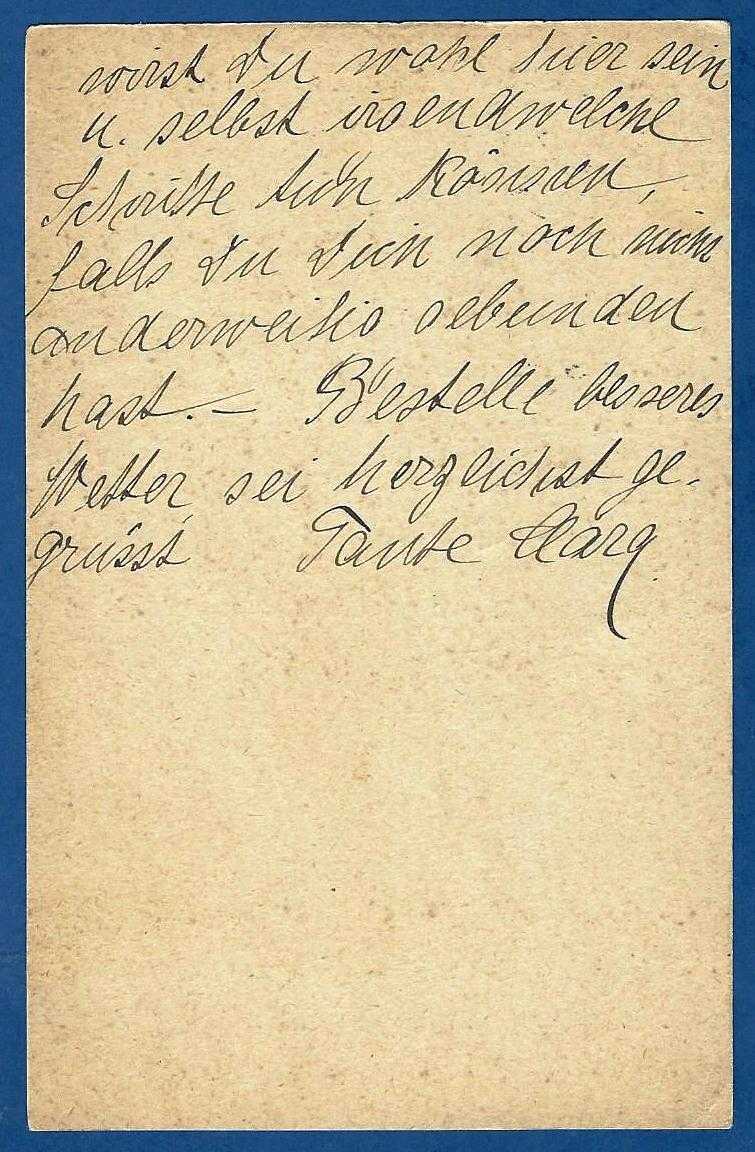 wirst Du wohl hier sein
u. selbst irgendwelche
Schritte tun können,
falls Du Dich noch nicht
anderweitig gebunden
hast. — Bestelle besseres
Wetter, sei herzlichst ge-
grüsst Tante Clara